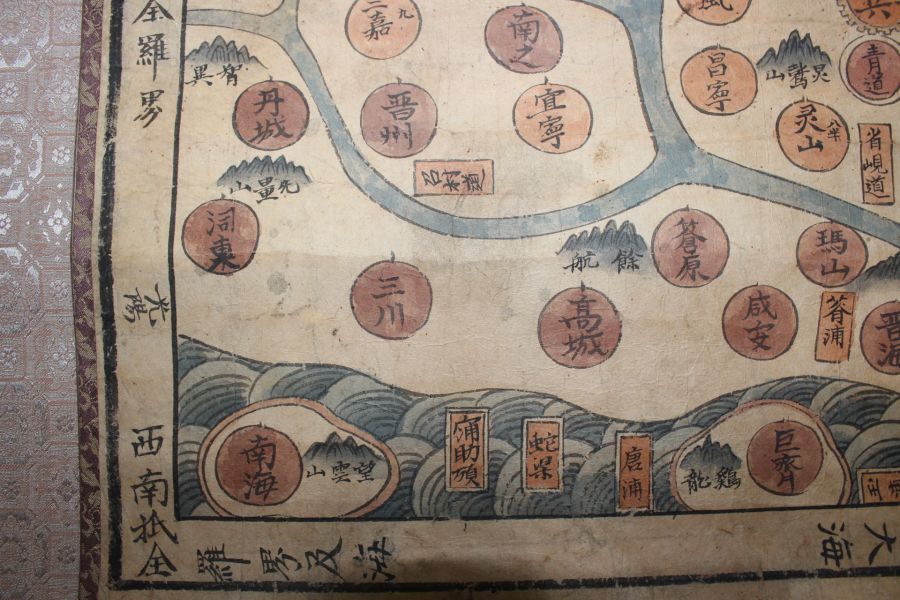 全羅界
三嘉
九
南之
昌寧
青道
智異
丹城
晋州
宜寧
灵山
八半
省峴道
召村道
山
洞東
三川
餘航
蒼原
瑪山
高城
咸安
蒼浦
晋海
南海
望雲山
蛇梁
唐浦
鷄龍
巨齊
西南抵全
羅界及海
大海